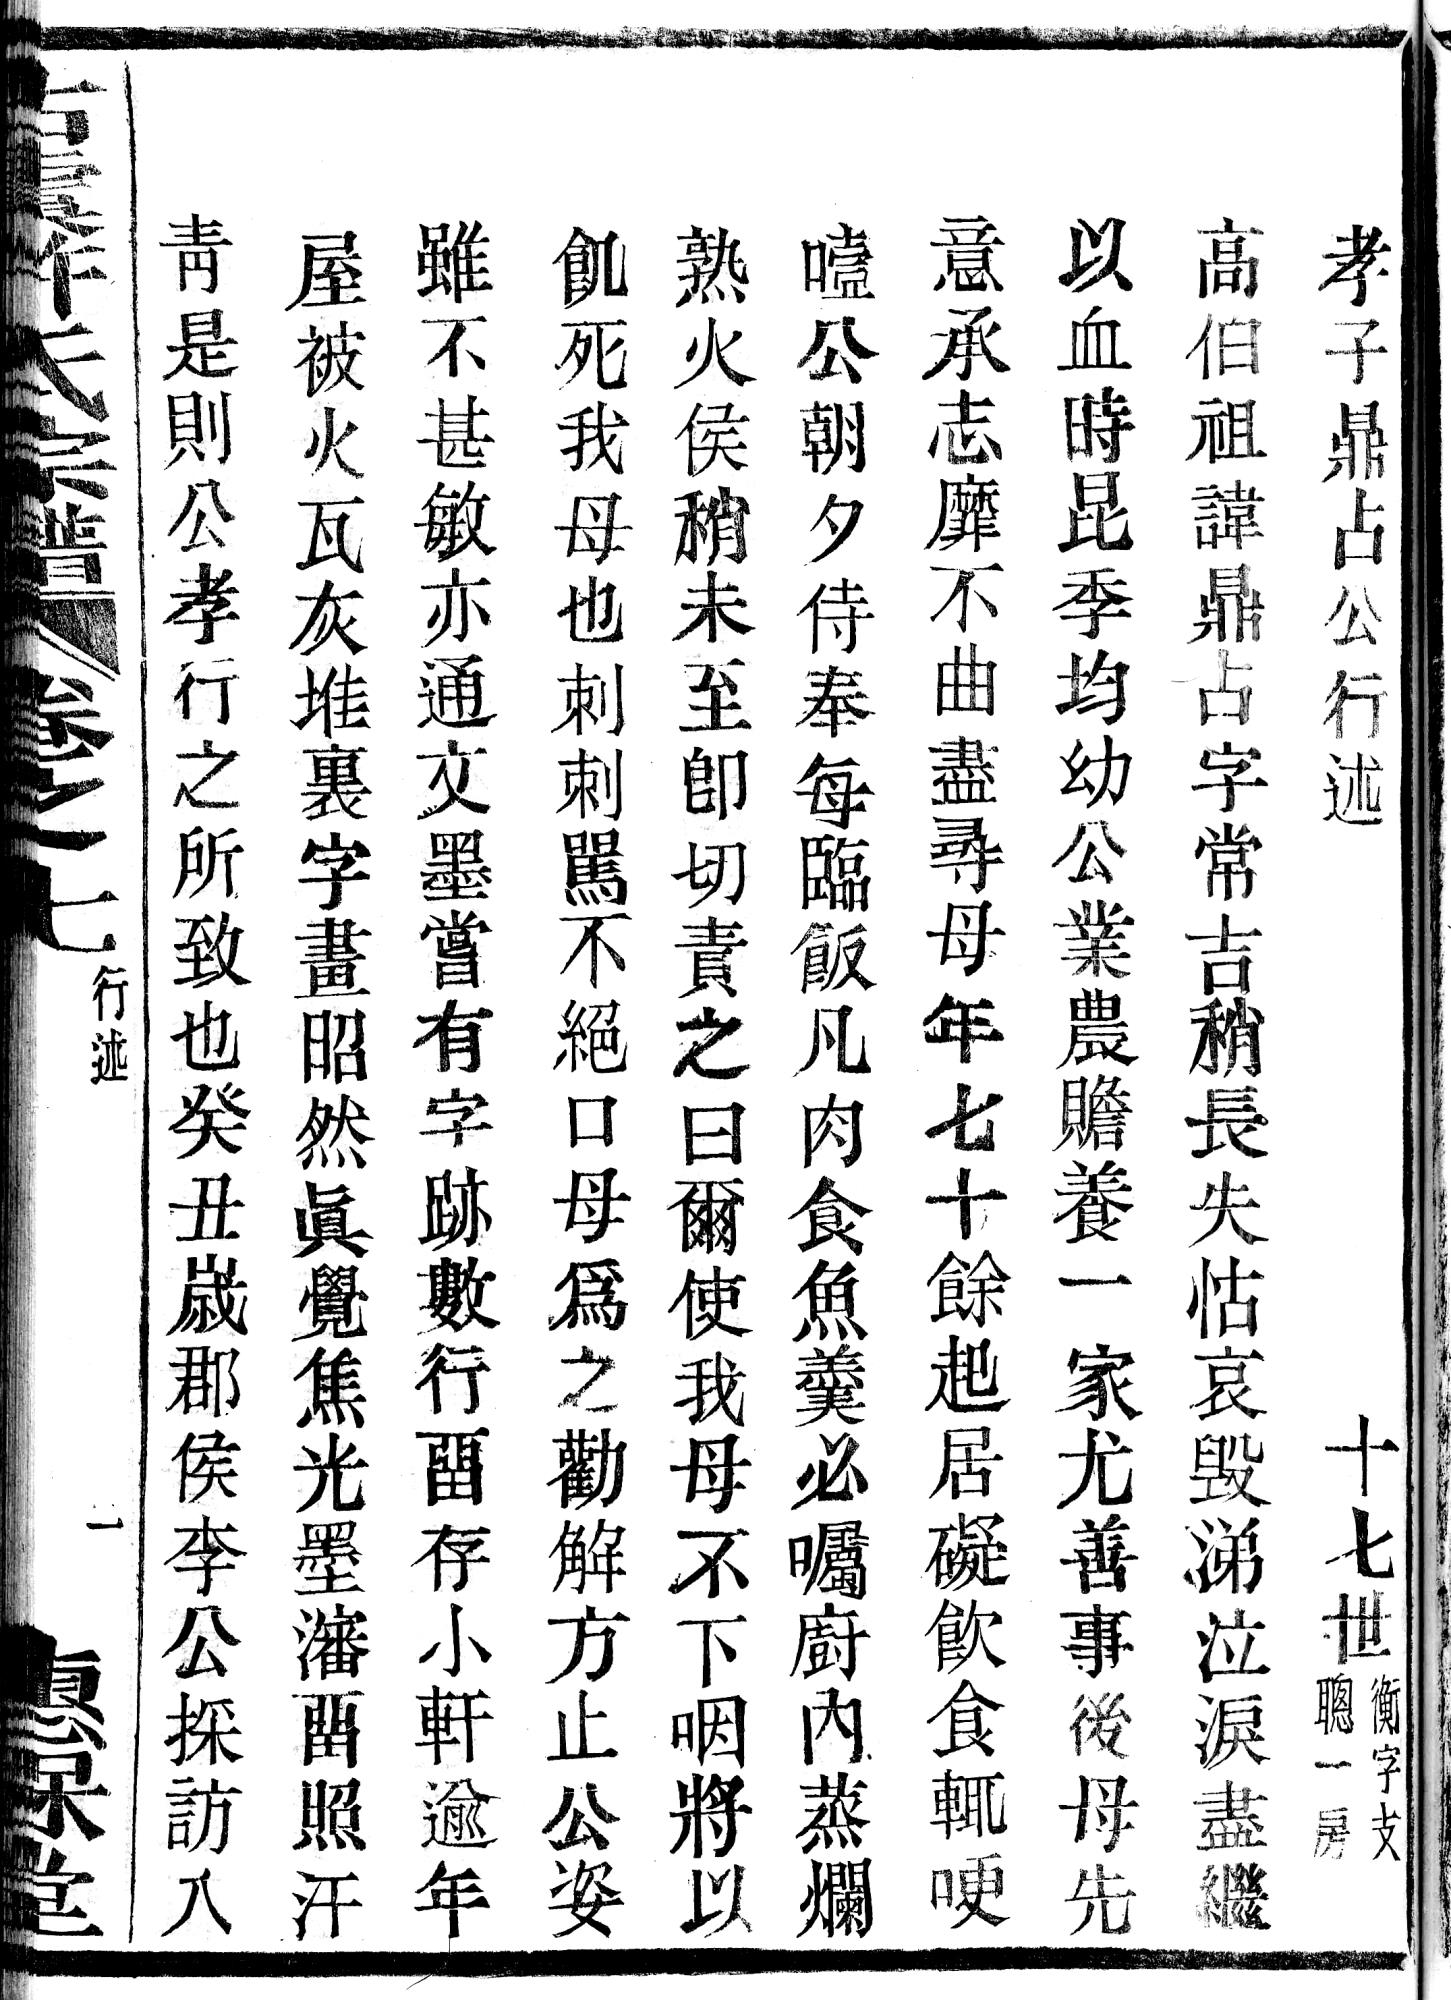 孝子鼎占公行述 十七世 衡字支 聰一房
高伯祖諱鼎占字常吉稍長失怙哀毁涕泣淚盡繼
以血時昆季均幼公業農贍養一家尤善事後母先
意承志靡不曲盡尋母年七十餘起居礙飲食輒哽
嗑公朝夕侍奉每臨飯凡肉食魚羹必囑廚內蒸爛
熟火侯稍未至卽切責之曰爾使我母不下咽將以
飢死我母也刺刺駡不絕口母爲之勸解方止公姿
雖不甚敏亦通文墨嘗有字跡數行畱存小軒逾年
屋被火瓦灰堆裏字畫昭然眞覺焦光墨瀋畱照汗
靑是則公孝行之所致也癸丑歲郡侯李公採訪入
氏宗譜 卷之七 行述 一 堂